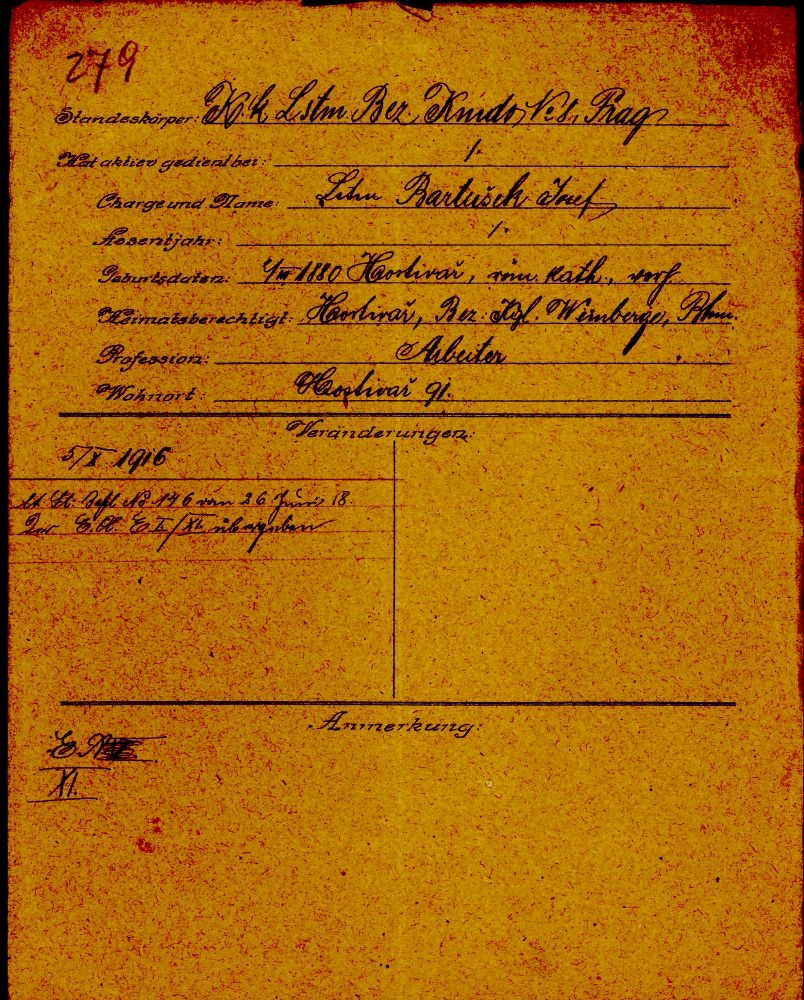 279
Standeskörper: K. k. Lstm. Bez. Kmdo, No 8, Prag
Hat aktiev gedient bei: /.
Charge und Name: Lstm Bartušek Josef
Assentjahr: /.
Geburtsdaten: 1880 Hostivař, röm. kath., verh
Heimatsberechtigt: Hostivař, Bez. Kgl. Weinberge, Bhm.
Profession: Arbeiter
Wohnort: Hostivař 91.
Veränderungen:
5/X 1916
lt. St. Befl No 146 vom 26 Juni 18
übergeben
Anmerkung:
E.
XI.